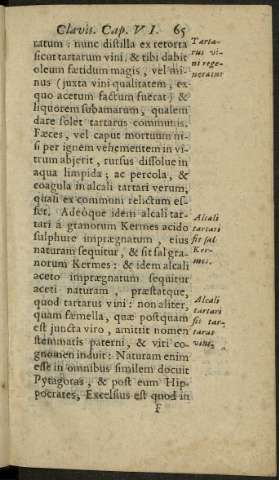 Clavis. Cap. VI. 65
ratum: nunc distilla ex retorta
sicut tartarum vini, & tibi dabit
oleum fœtidum magis, vel mi-
nus (juxta vini qualitatem, ex
quo acetum factum fuerat) &
liquorem subamarum, qualem
dare solet tartarus communis.
Fæces, vel caput mortuum ni-
si per ignem vehementem in vi-
trum abjerit, rursus dissolue in
aqua limpida; ac percola, &
coagula in alcali tartari verum,
quasi ex communi relictum es-
set. Adeòque idem alcali tar-
tari â granorum Kermes acido
sulphure imprægnatum, eius
naturam sequitur, & fit sal gra-
norum Kermes: & idem alcali
aceto imprægnatum sequitur
aceti naturam, præstatque,
quod tartarus vini: non aliter,
quam fœmella, quæ postquam
est juncta viro, amittit nomen
stemmatis paterni, & viti co-
gnomen induit: Naturam enim
esse in omnibus similem docuit
Pytagoras, & post eum Hip-
pocrates, Excelsius est quod in
F
Tarta-
rus vi-
ni rege-
neratur
Alcali
tartari
fit sal
Ker-
mes.
Alcali
tartari
fit tar-
tarus
vini,